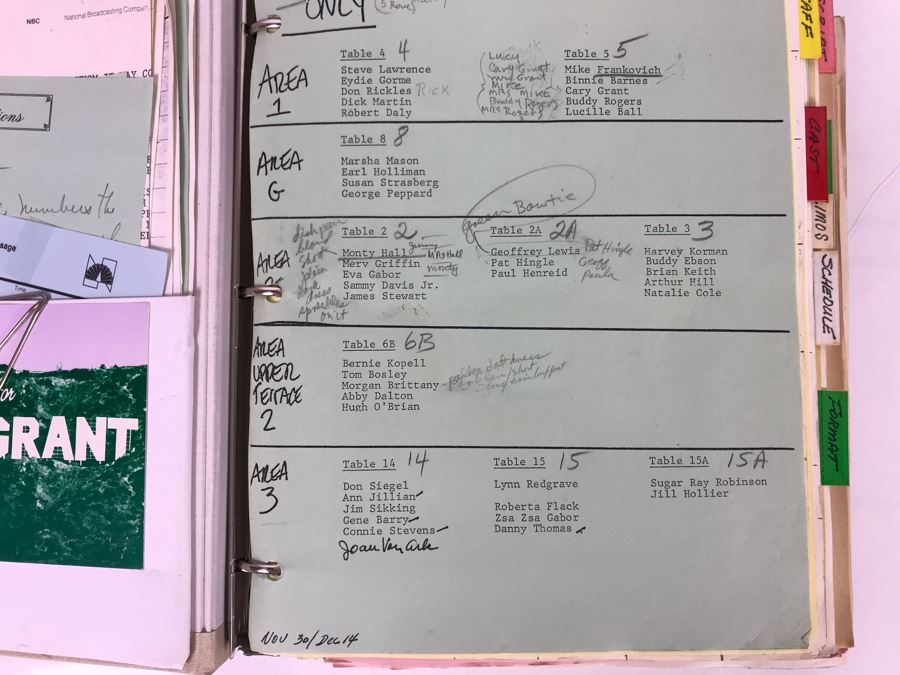 NBC
National Broadcasting Company
ONLY
(5 Rows)
AREA
1
Table 4 4
Steve Lawrence
Eydie Gorme
Don Rickles Rick
Dick Martin
Robert Daly
Lucy
Cary Grant
Mrs Grant
Mike
Mrs Mike
Buddy Rogers
Mrs Rogers
Table 5 5
Mike Frankovich
Binnie Barnes
Cary Grant
Buddy Rogers
Lucille Ball
AREA
G
Table 8 8
Marsha Mason
Earl Holliman
Susan Strasberg
George Peppard
green Bowtie
AREA
Table 2 2
Monty Hall
Merv Griffin
Eva Gabor
Sammy Davis Jr.
James Stewart
Mrs Hall
monty
blond
short
plain
dark
dress
on it
Table 2A 2A
Geoffrey Lewis
Pat Hingle
Paul Henreid
Pat Hingle
Geoff
Table 3 3
Harvey Korman
Buddy Ebson
Brian Keith
Arthur Hill
Natalie Cole
AREA
UPPER
TERRACE
2
Table 6B 6B
Bernie Kopell
Tom Bosley
Morgan Brittany
Abby Dalton
Hugh O'Brian
AREA
3
Table 14 14
Don Siegel
Ann Jillian
Jim Sikking
Gene Barry
Connie Stevens
Joan Van Ark
Table 15 15
Lynn Redgrave
Roberta Flack
Zsa Zsa Gabor
Danny Thomas
Table 15A 15A
Sugar Ray Robinson
Jill Hollier
NOV 30/Dec 14
numbers the
Time
for
GRANT
CAST
LIMOS
SCHEDULE
FORMAT